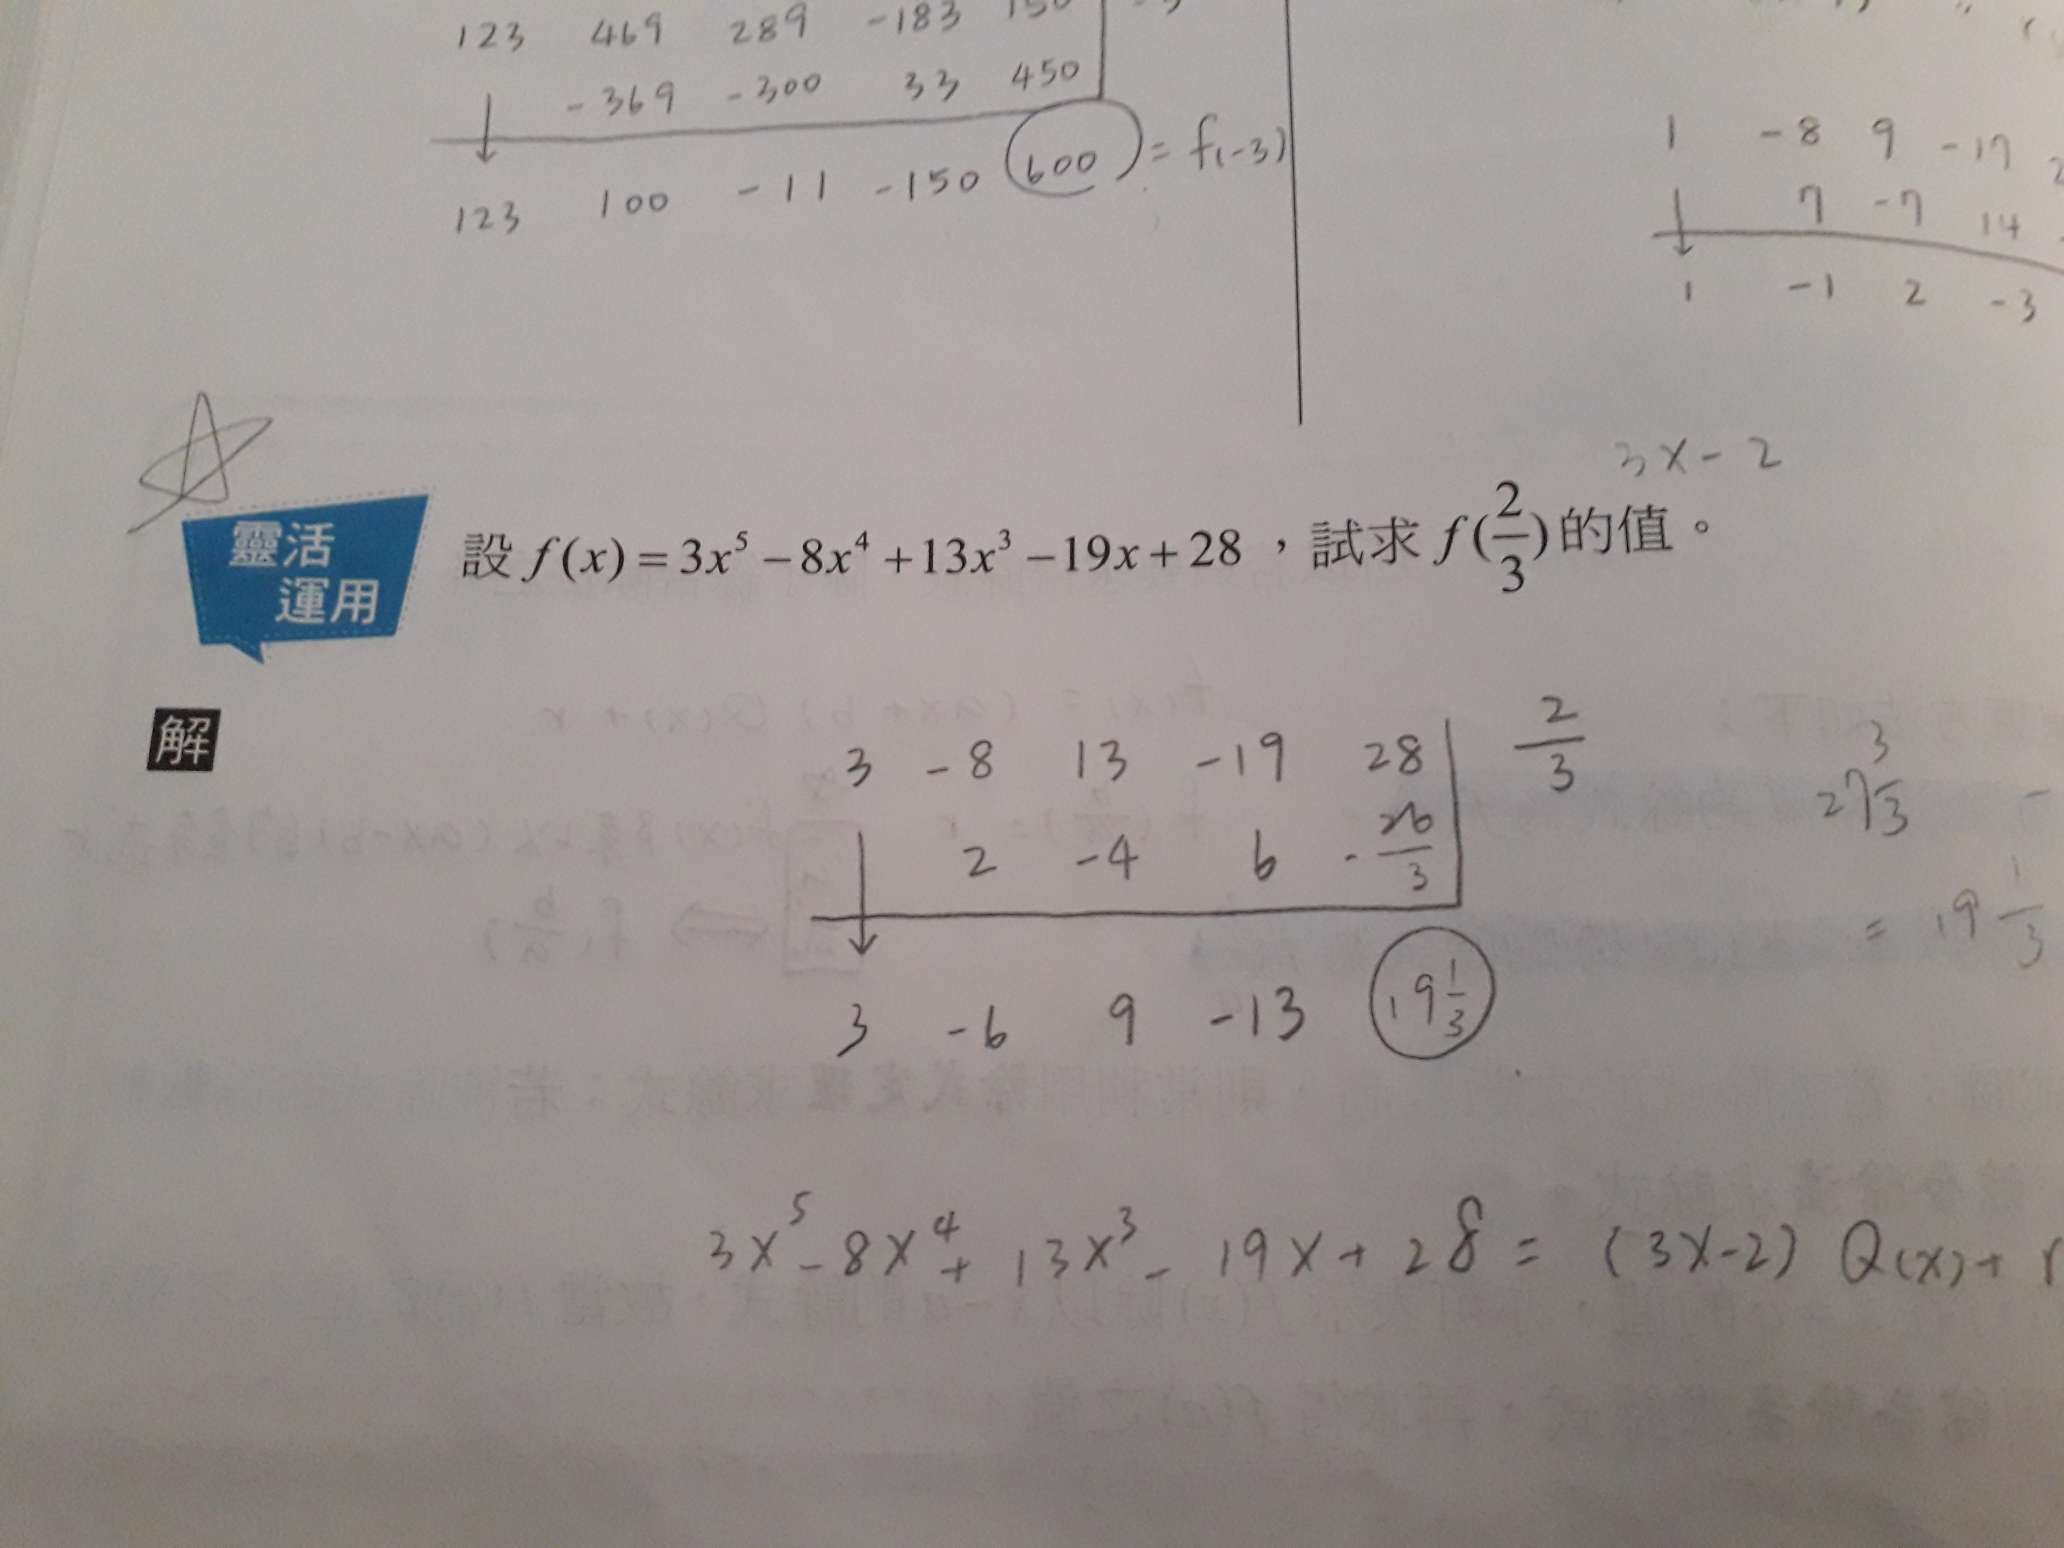 123 469 289 -183 150
-369 -300 33 450
123 100 -11 -150 600 = f(-3)
1 -8 9 -17
7 -7 14
1 -1 2 -3
3x-2
靈活
運用
設 f(x) = 3x⁵ − 8x⁴ + 13x³ − 19x + 28 ，試求 f(2/3) 的值。
解
3 -8 13 -19 28 2/3
2 -4 6 -26/3
3 -6 9 -13 19 1/3
= 19 1/3
3x⁵ - 8x⁴ + 13x³ - 19x + 28 = (3x-2) Q(x) + r